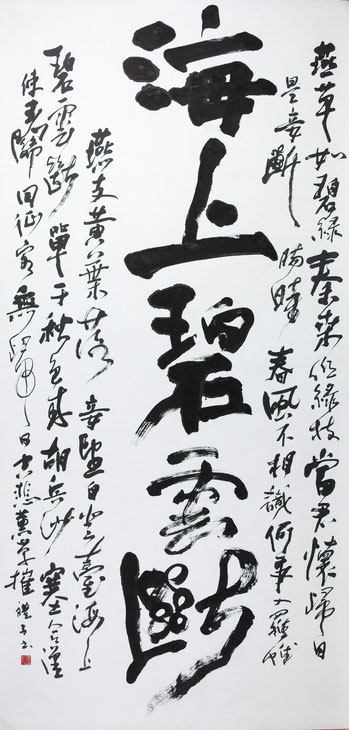 燕草如碧絲秦桑低綠枝當君懷歸日
是妾斷腸時春風不相識何事入羅幃
海上碧雲斷
燕支黃葉落妾望自登臺海上
碧雲斷單于秋色來胡兵沙塞合漢
使玉關回征客無歸日空悲蕙草摧